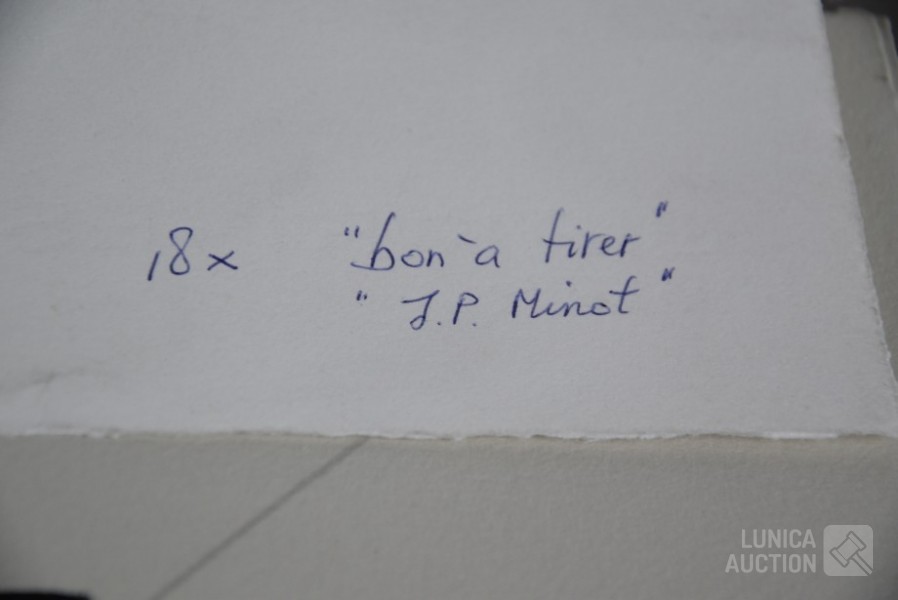 18x "bon à tirer"
" J.P. Minot "
LUNICA
AUCTION